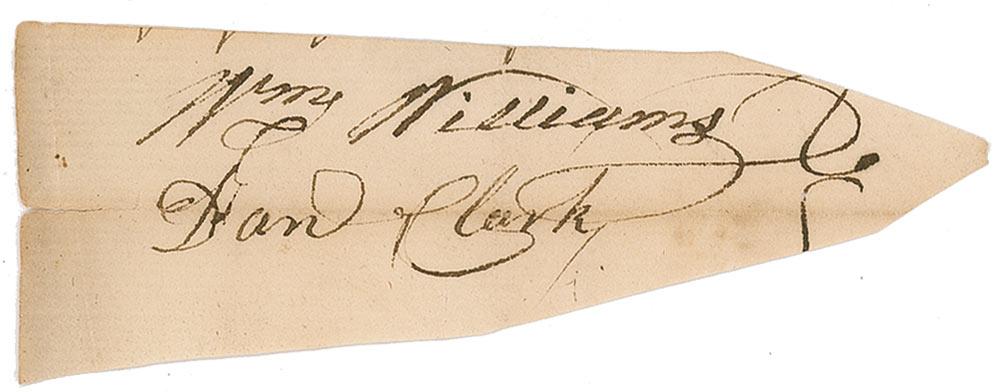 Wms Williams
Dan Clark